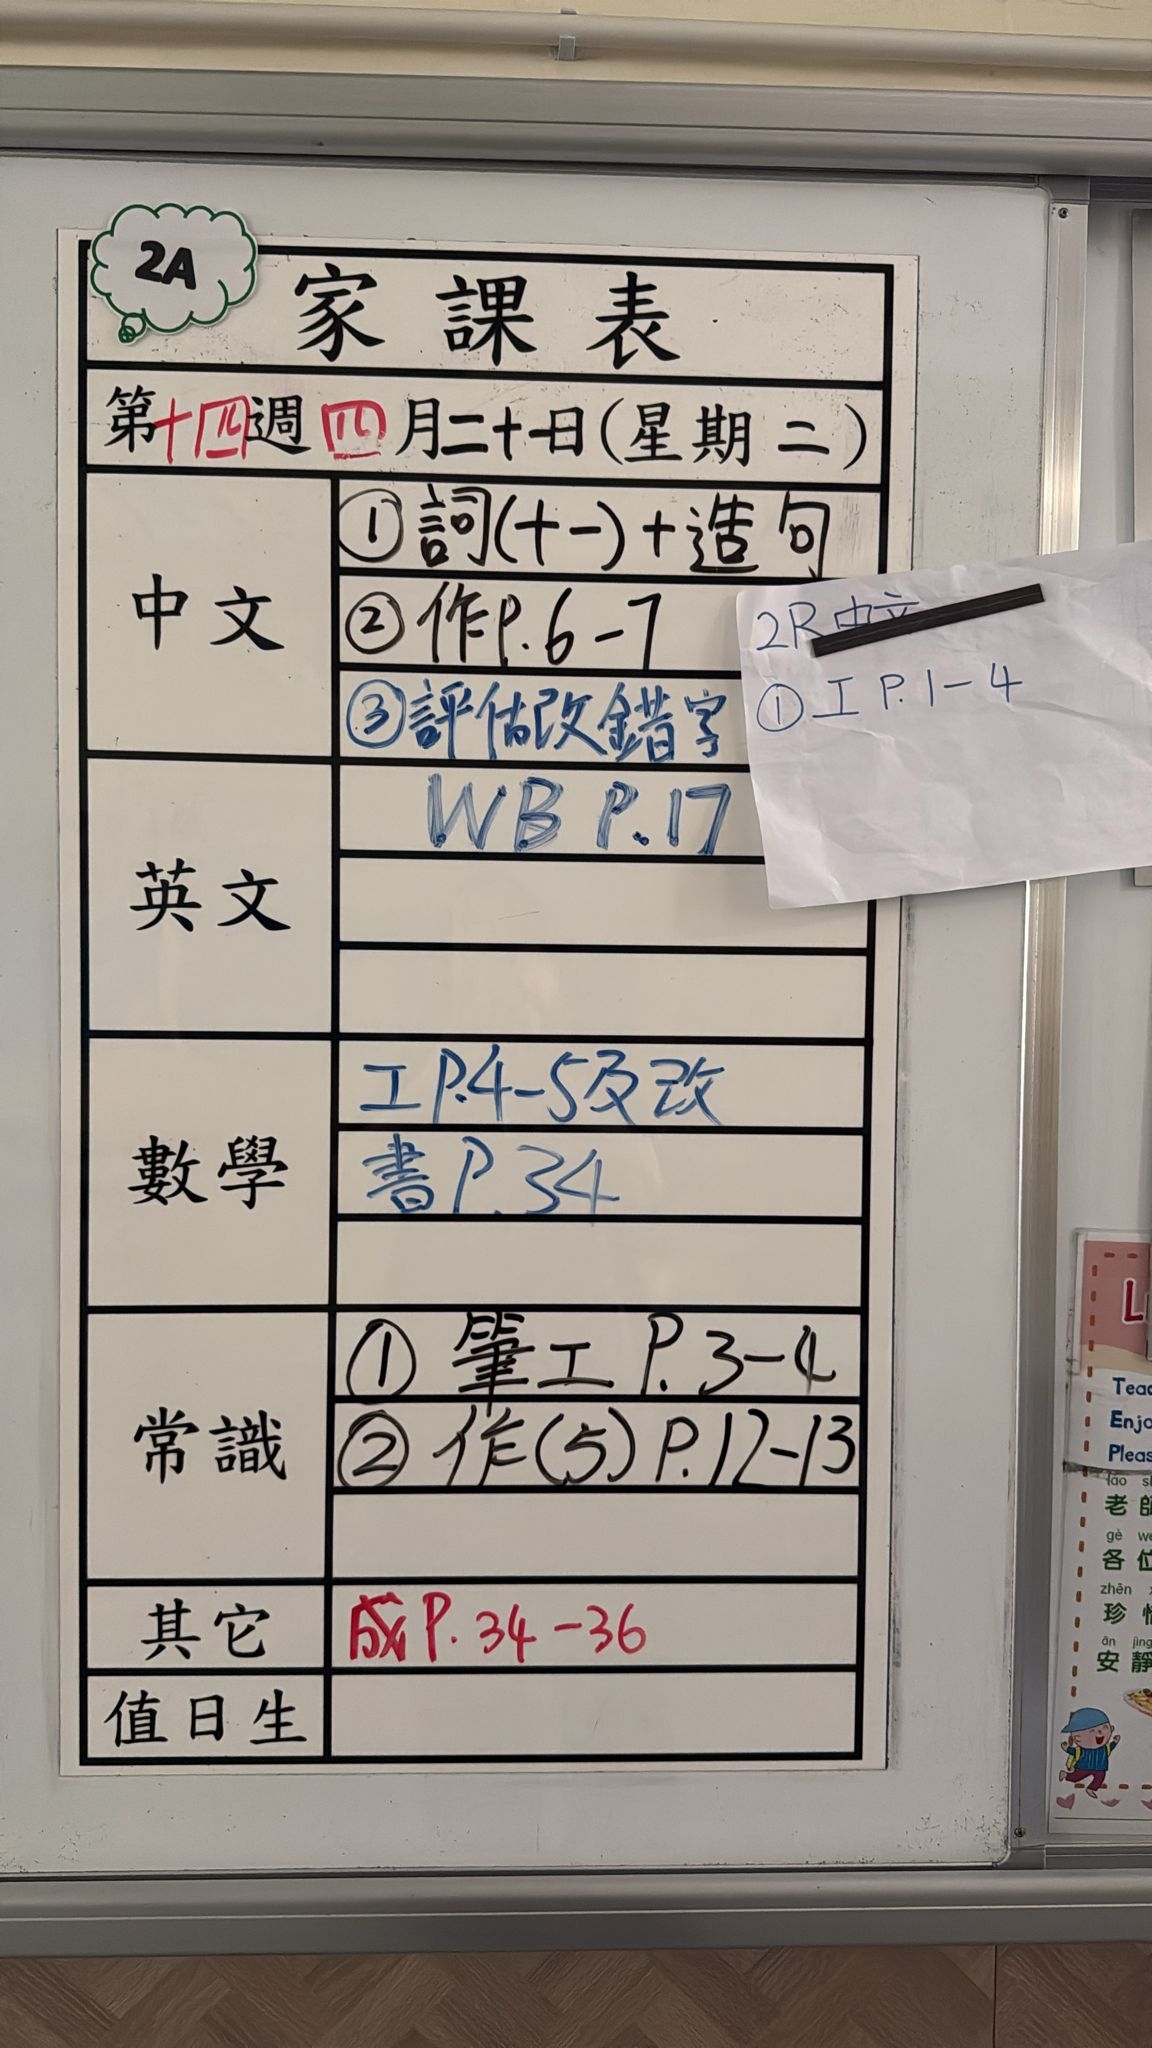 2A
家課表
第十四週四月二十一日(星期二)
中文
①詞(十一)+造句
②作P.6-7
③評估改錯字
2R中文
①工P.1-4
英文
WB P.17
數學
工P.4-5及改
書P.34
常識
①筆工P.3-4
②作(5)P.12-13
其它
成P.34-36
值日生
L
Teac
Enjo
Pleas
lǎo
老師
gè
各位
zhēn
珍惜
ān jìng
安靜